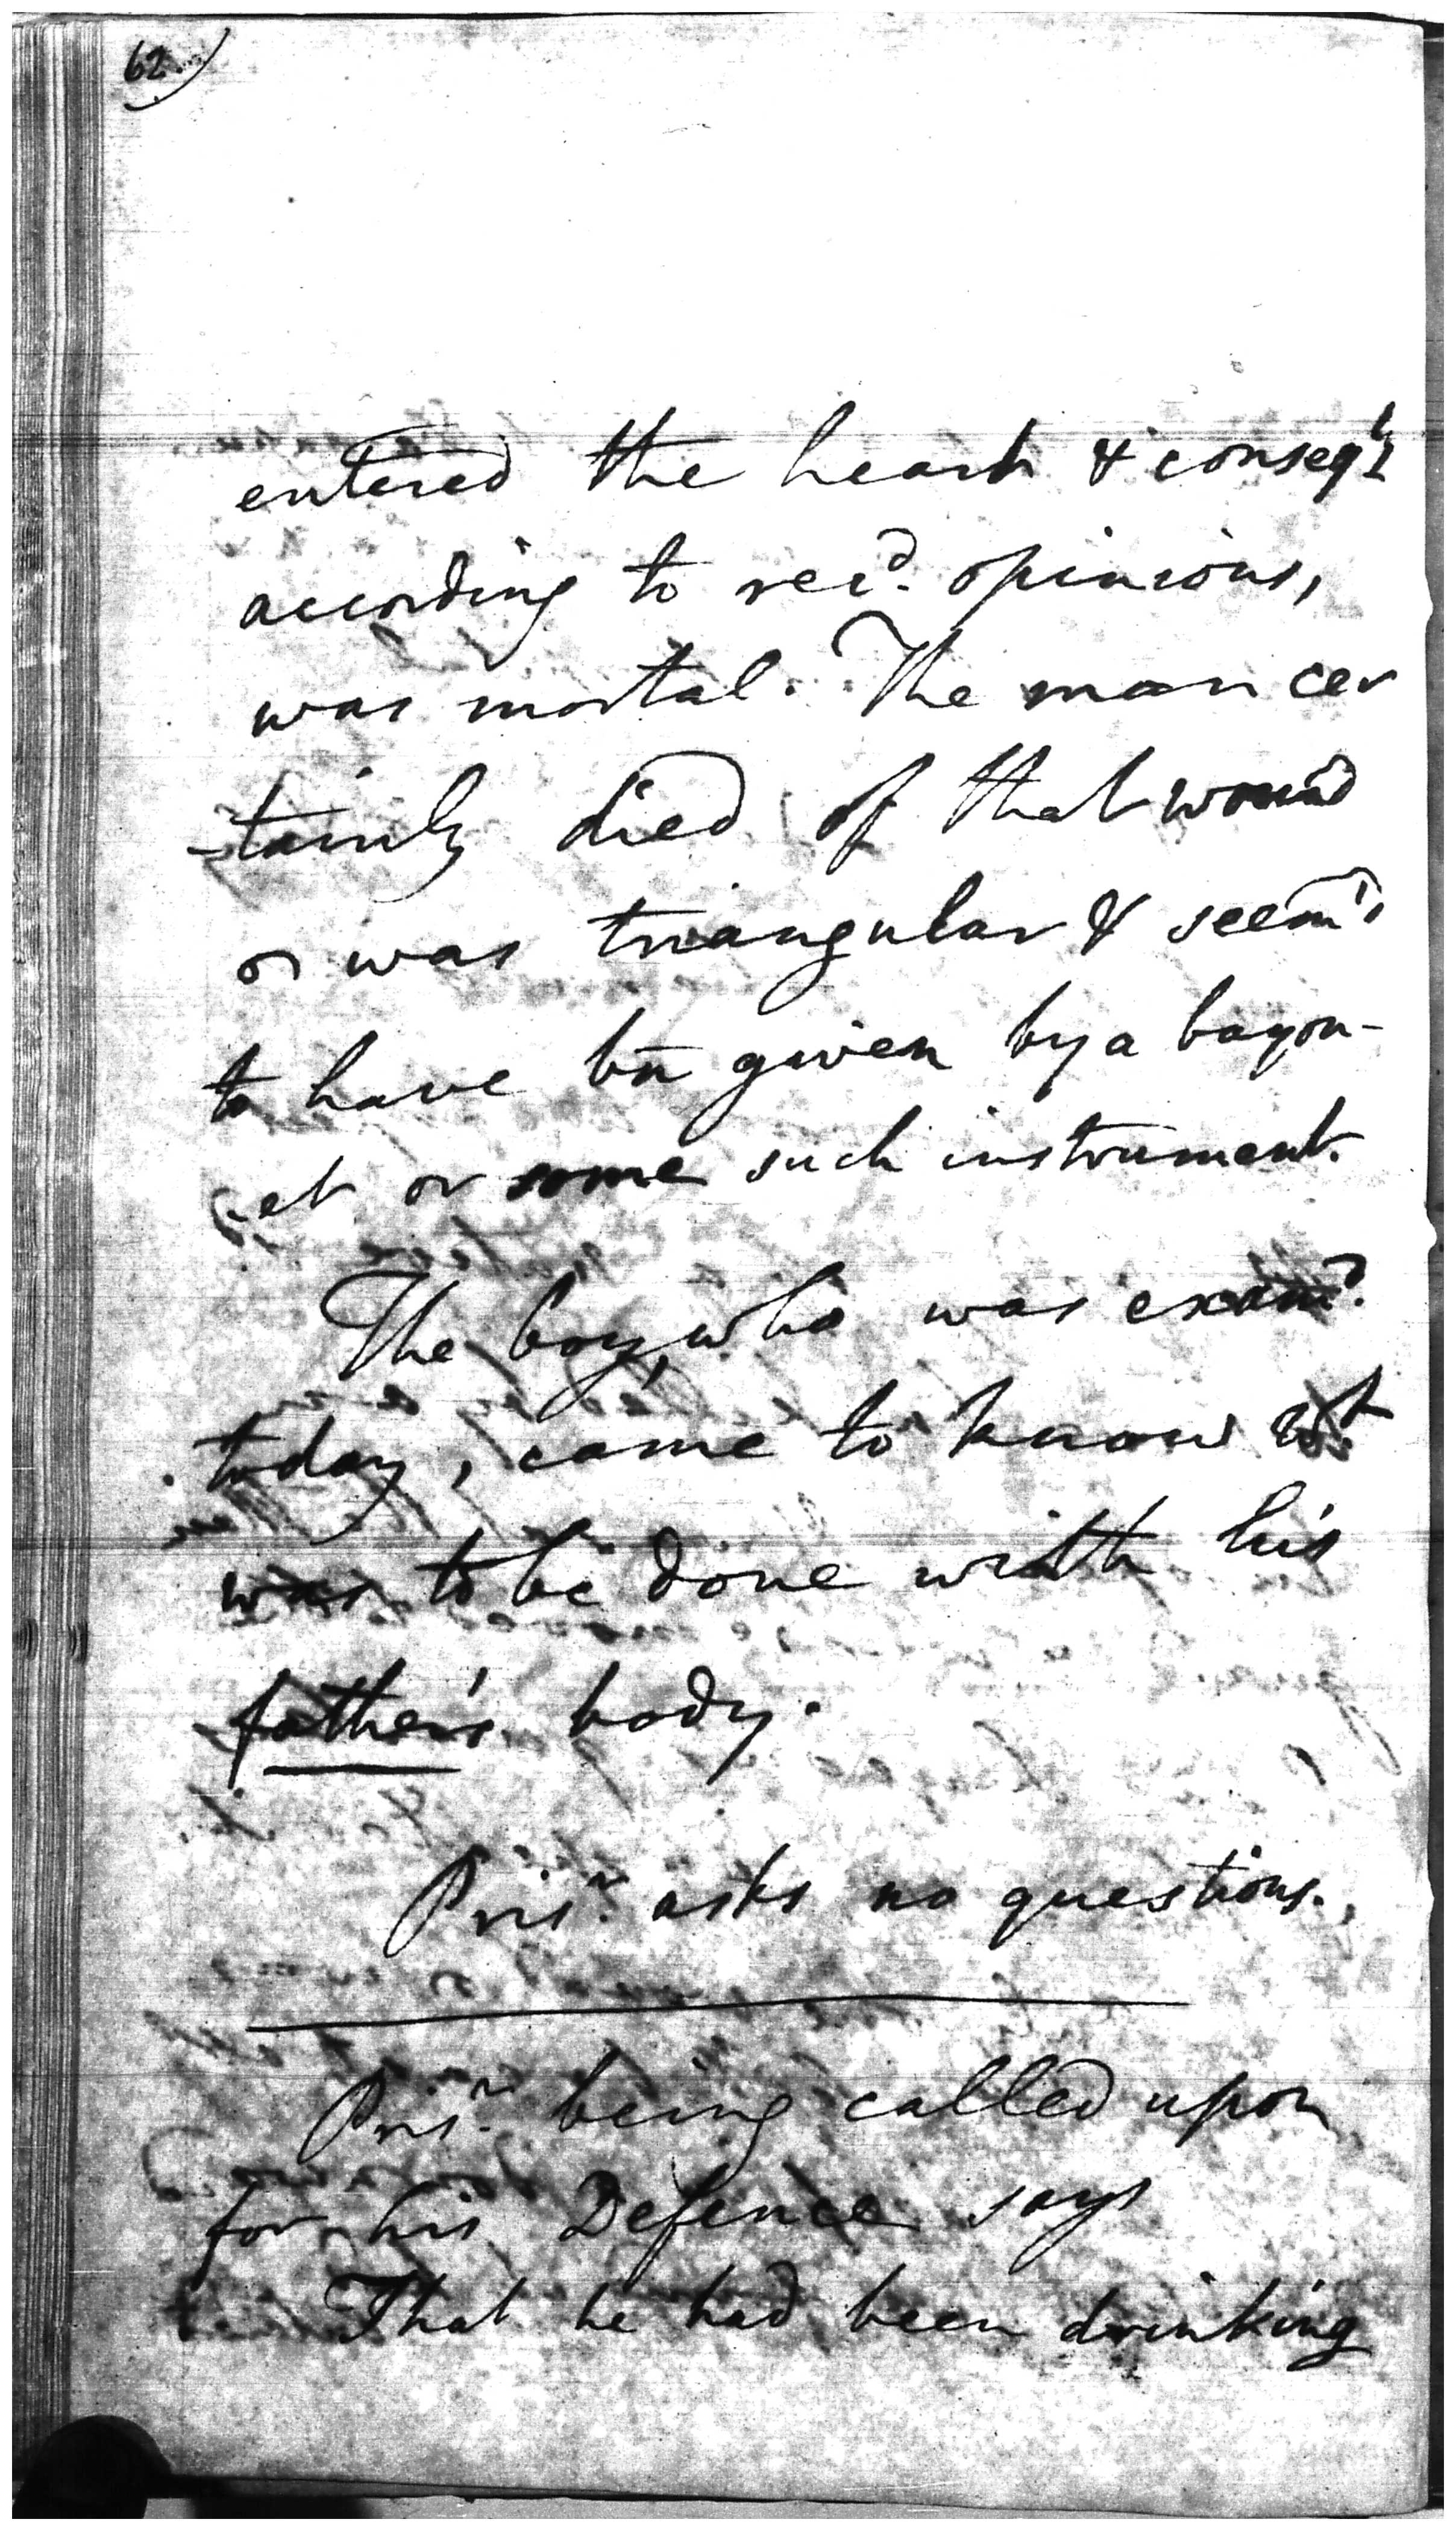 62
entered the heart & conseqly
according to recd. opinions,
was mortal. The man cer
-tainly died of that wound
was triangular & seem'd
to have bn given by a bayon-
-et or some such instrument.
The boy, who was examd.
today, came to know wt
was to be done with his
father's body.
Prisr. asks no questions.
Prisr. being called upon
for his Defence says
That he had been drinking